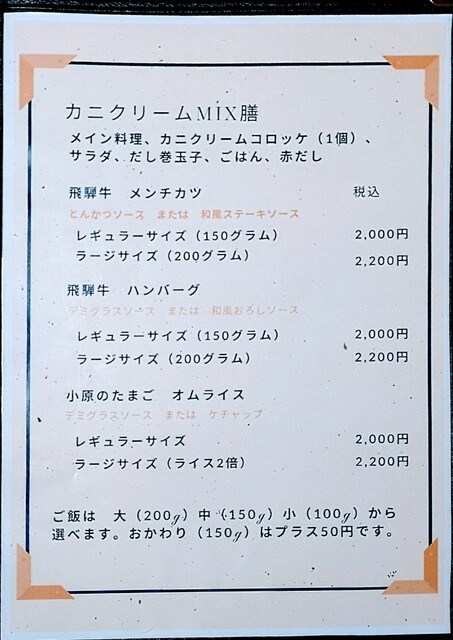 カニクリームMIX膳
メイン料理、カニクリームコロッケ（1個）、
サラダ、だし巻玉子、ごはん、赤だし
飛騨牛　メンチカツ　税込
とんかつソース　または　和風ステーキソース
レギュラーサイズ（150グラム）　2,000円
ラージサイズ（200グラム）　2,200円
飛騨牛　ハンバーグ
デミグラスソース　または　和風おろしソース
レギュラーサイズ（150グラム）　2,000円
ラージサイズ（200グラム）　2,200円
小原のたまご　オムライス
デミグラスソース　または　ケチャップ
レギュラーサイズ　2,000円
ラージサイズ（ライス2倍）　2,200円
ご飯は　大（200g）中（150g）小（100g）から
選べます。おかわり（150g）はプラス50円です。